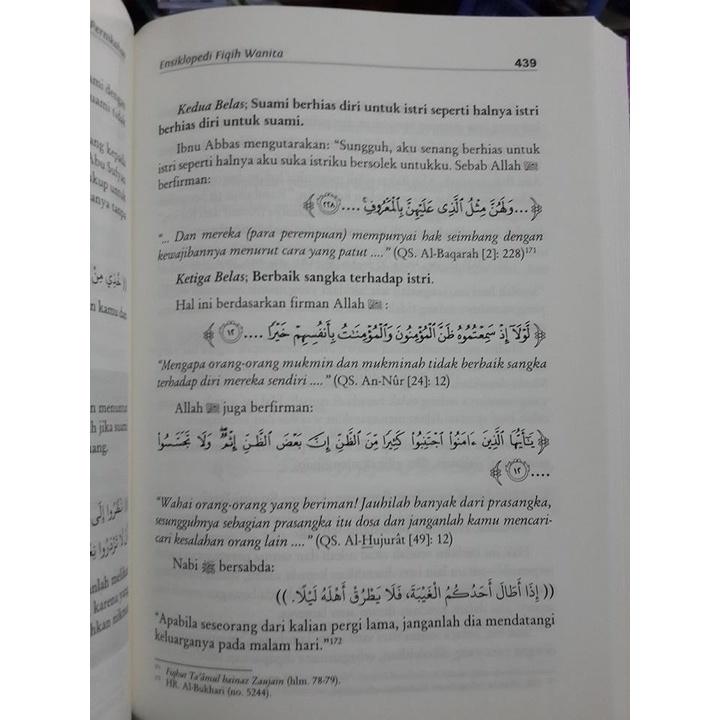 Ensiklopedi Fiqih Wanita
439
Kedua Belas; Suami berhias diri untuk istri seperti halnya istri
berhias diri untuk suami.
Ibnu Abbas mengutarakan: “Sungguh, aku senang berhias untuk
istri seperti halnya aku suka istriku bersolek untukku. Sebab Allah ﷻ
berfirman:
﴿...وَلَهُنَّ مِثْلُ الَّذِي عَلَيْهِنَّ بِالْمَعْرُوفِ ۚ .... ٢٢٨﴾
“... Dan mereka (para perempuan) mempunyai hak seimbang dengan
kewajibannya menurut cara yang patut ....” (QS. Al-Baqarah [2]: 228)171
Ketiga Belas; Berbaik sangka terhadap istri.
Hal ini berdasarkan firman Allah ﷻ :
﴿لَّوْلَآ إِذْ سَمِعْتُمُوهُ ظَنَّ الْمُؤْمِنُونَ وَالْمُؤْمِنَٰتُ بِأَنفُسِهِمْ خَيْرًا .... ١٢﴾
“Mengapa orang-orang mukmin dan mukminah tidak berbaik sangka
terhadap diri mereka sendiri ....” (QS. An-Nûr [24]: 12)
Allah ﷻ juga berfirman:
﴿يَٰٓأَيُّهَا الَّذِينَ ءَامَنُوا۟ اجْتَنِبُوا۟ كَثِيرًا مِّنَ الظَّنِّ إِنَّ بَعْضَ الظَّنِّ إِثْمٌ ۖ وَلَا تَجَسَّسُوا۟
.... ١٢﴾
“Wahai orang-orang yang beriman! Jauhilah banyak dari prasangka,
sesungguhnya sebagian prasangka itu dosa dan janganlah kamu mencari-
cari kesalahan orang lain ....” (QS. Al-Hujurât [49]: 12)
Nabi ﷺ bersabda:
(( إِذَا أَطَالَ أَحَدُكُمُ الْغَيْبَةَ، فَلَا يَطْرُقْ أَهْلَهُ لَيْلًا. ))
“Apabila seseorang dari kalian pergi lama, janganlah dia mendatangi
keluarganya pada malam hari.”172
Fiqhut Ta'âmul bainaz Zaujain (hlm. 78-79).
HR. Al-Bukhari (no. 5244).